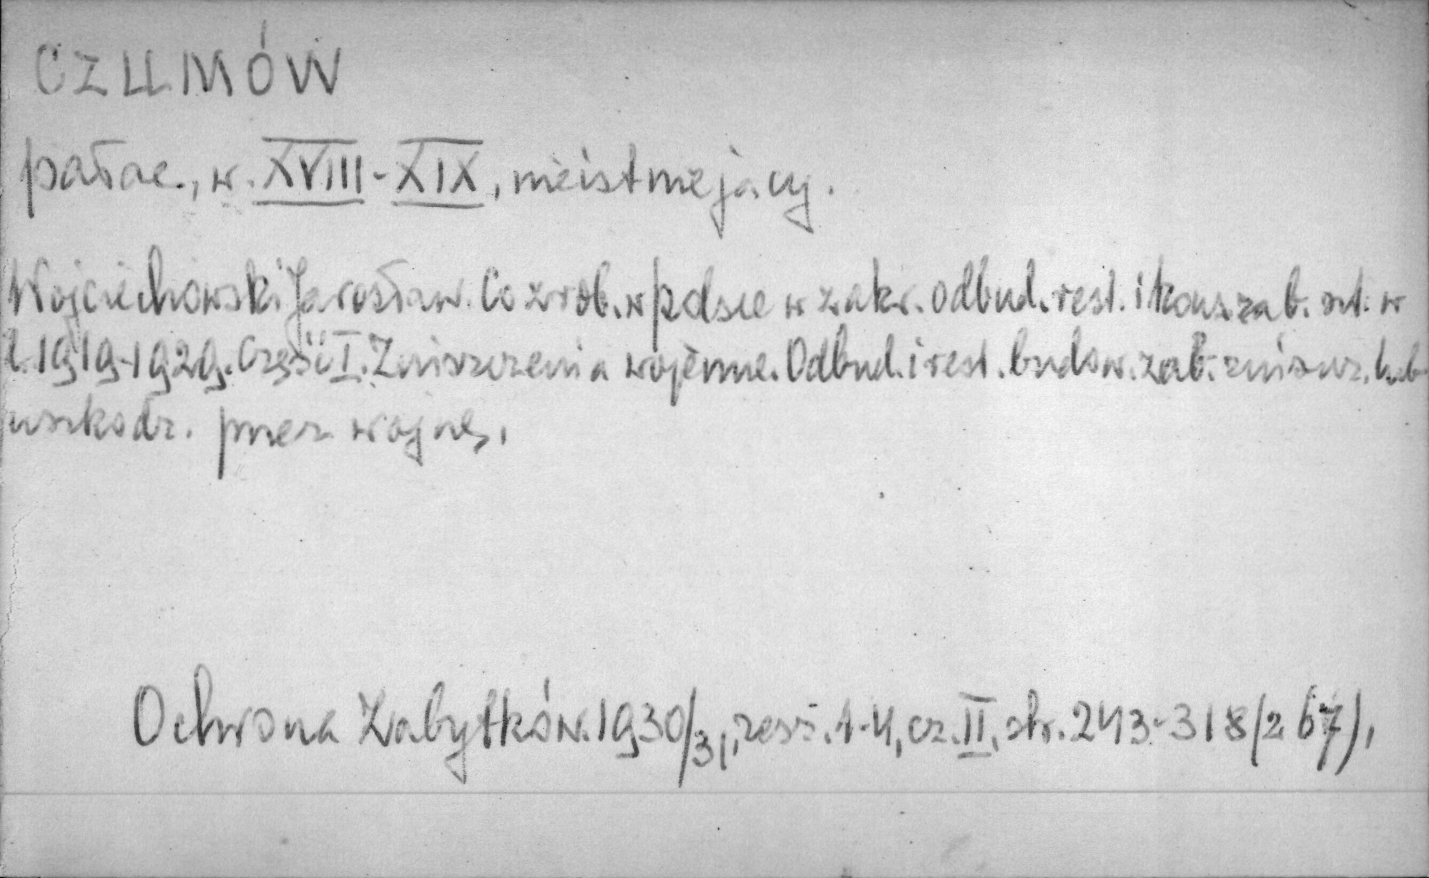 CZUMÓW
pałac., w. XVIII-XIX, nieistniejący.
Wojciechowski Jarosław. Co zrob. w Polsce w zakr. odbud. rest. i kons. zab. szt. w
l. 1919-1929. Część I. Zniszczenia wojenne. Odbud. i rest. budow. zab. zniszcz. lub
uszkodz. przez wojnę,
Ochrona Zabytków. 1930/31, zesz. 1-4, cz. II, str. 243-318 (267),